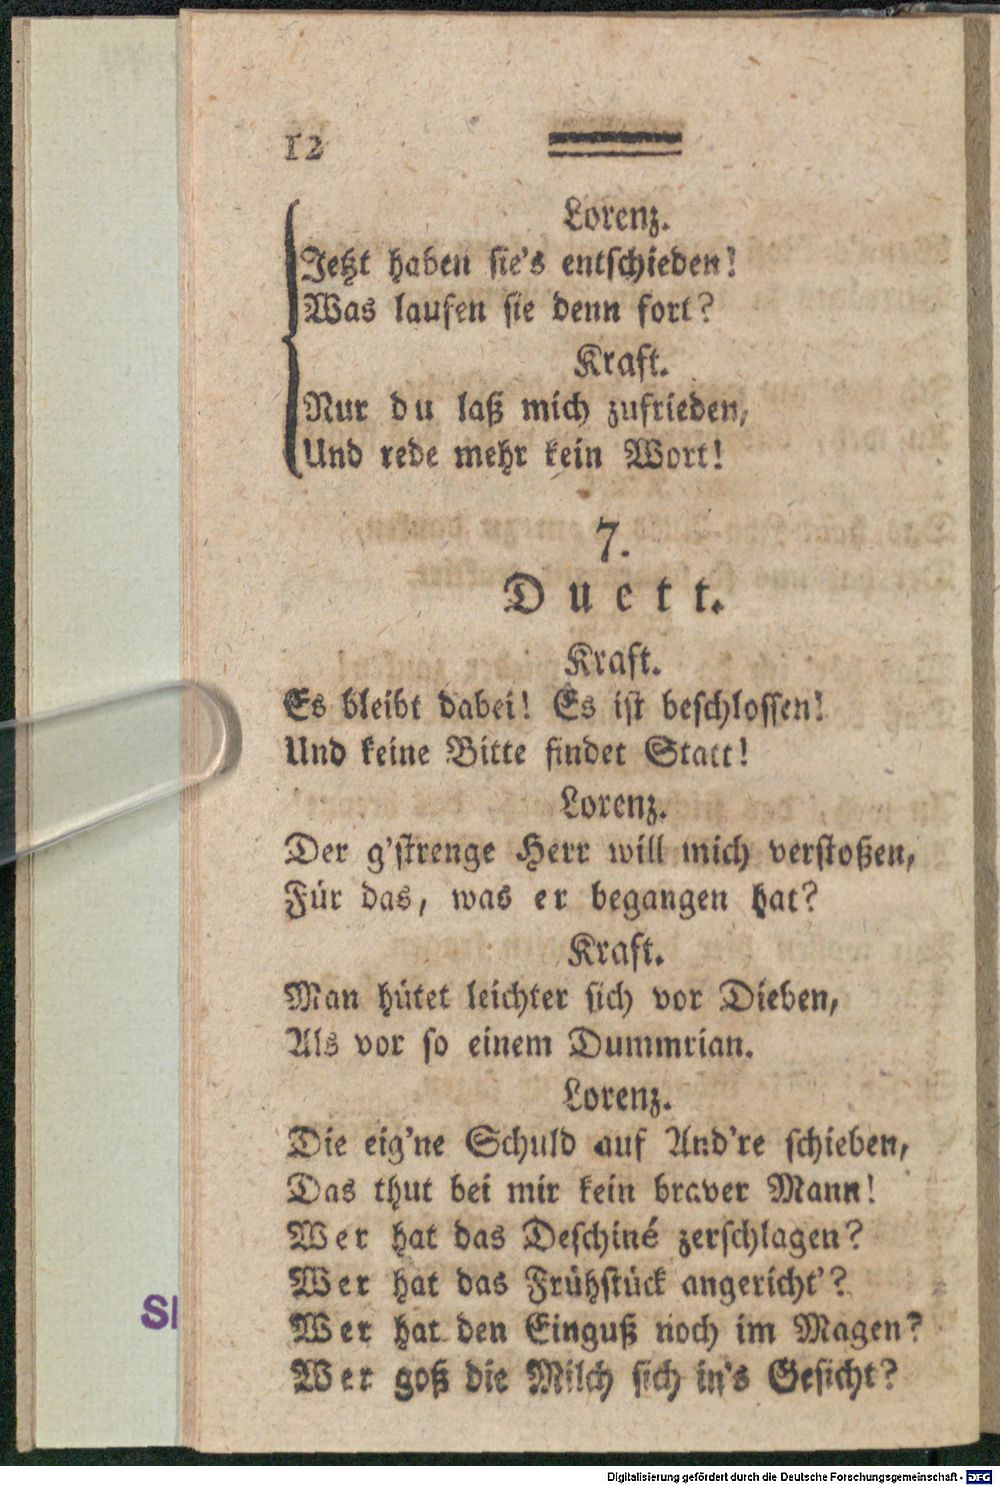 12
Lorenz.
Jetzt haben sie's entschieden!
Was laufen sie denn fort?
Kraft.
Nur du laß mich zufrieden,
Und rede mehr kein Wort!
7.
Duett.
Kraft.
Es bleibt dabei! Es ist beschlossen!
Und keine Bitte findet Statt!
Lorenz.
Der g'strenge Herr will mich verstoßen,
Für das, was er begangen hat?
Kraft.
Man hütet leichter sich vor Dieben,
Als vor so einem Dummrian.
Lorenz.
Die eig'ne Schuld auf And're schieben,
Das thut bei mir kein braver Mann!
Wer hat das Deschiné zerschlagen?
Wer hat das Frühstück angericht'?
Wer hat den Einguß noch im Magen?
Wer goß die Milch sich in's Gesicht?
Digitalisierung gefördert durch die Deutsche Forschungsgemeinschaft - DFG